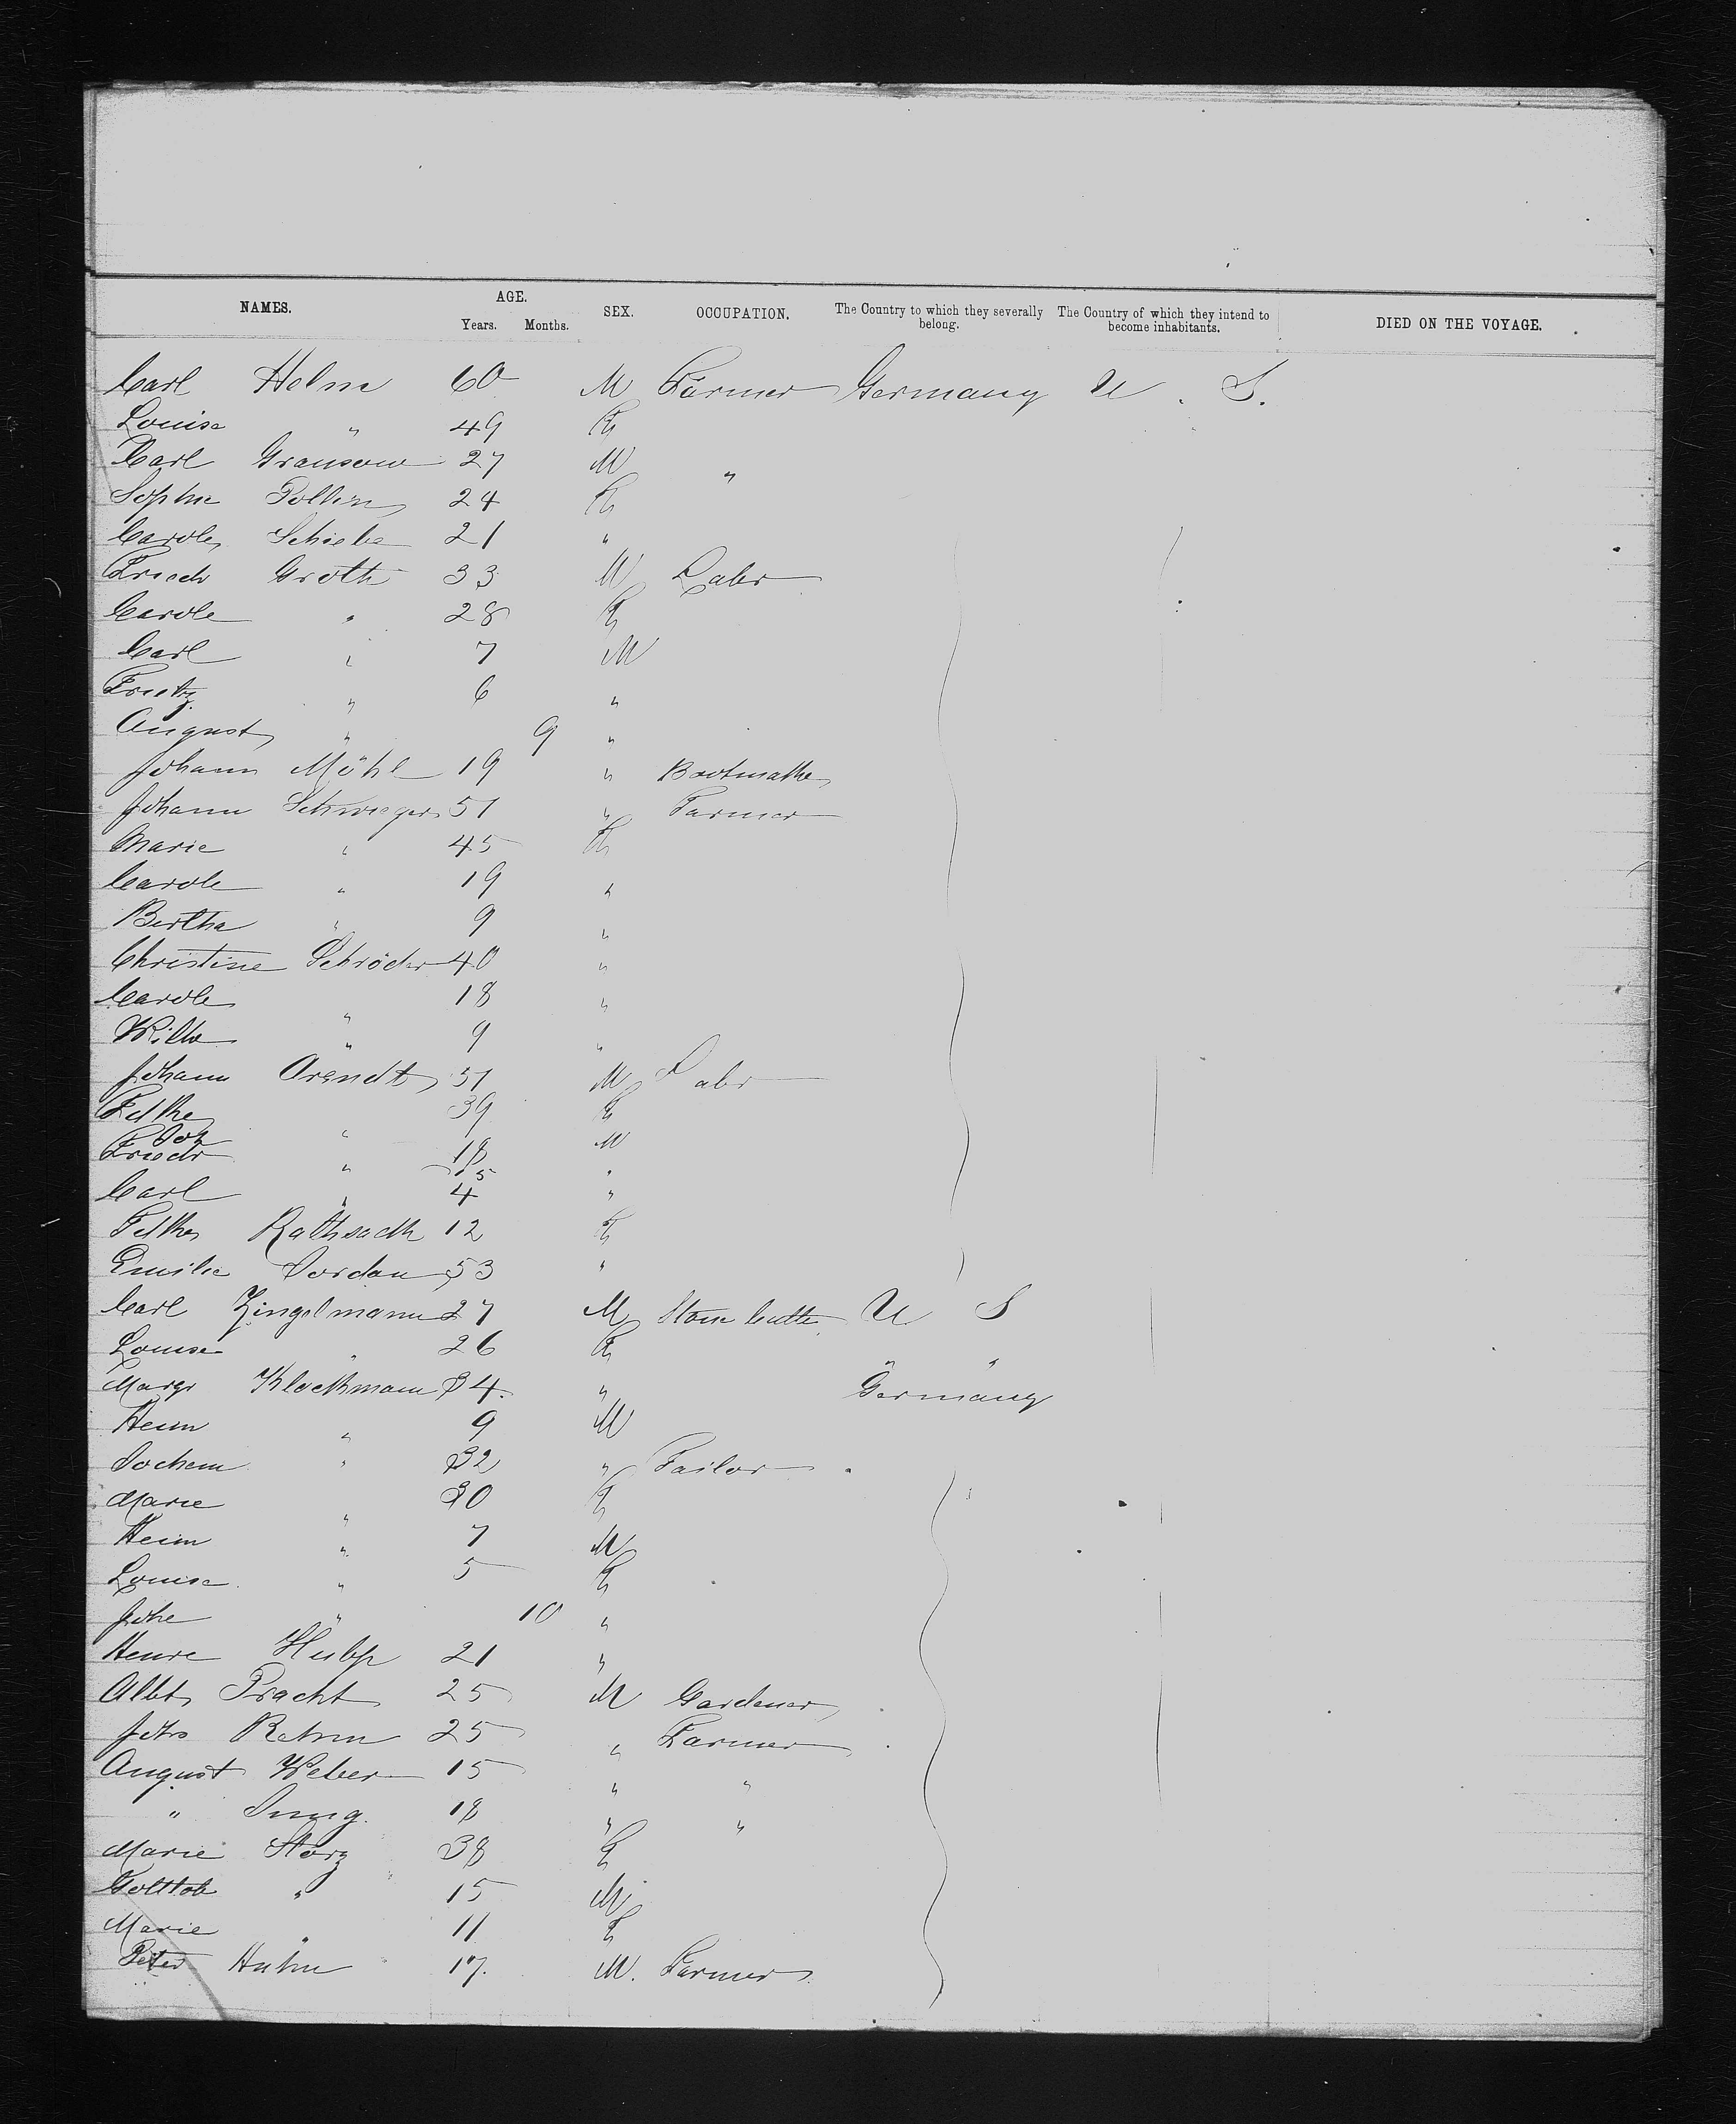 NAMES. AGE. Years. Months. SEX. OCCUPATION. The Country to which they severally belong. The Country of which they intend to become inhabitants. DIED ON THE VOYAGE.
Carl Helm 60 M Farmer Germany U. S.
Louise " 49 F
Carl Gransow 27 M "
Sophie 24 F
Carole 21 "
Friedr Groth 33 M Labr
Carole " 28 F
Carl " 7 M
" 6 "
August " 9 "
Johann Möhl 19 "
Johann Schwieger 51 " Farmer
Marie " 45 F
Carole " 19 "
Bertha " 9 "
Christine Schröder 40 "
Carole " 18 "
Wilh " 9 "
Johann Arendt 51 M Labr
39 F
Joh " 18 M
Friedr " 15 "
Carl " 4 "
12 F
Emilie Jordan 53 "
Carl Zingelmann 27 M Stone Cutte U S
Louise " 26 F " "
Margr Klockmann 34 " Germany
" 9 M
Jochem " 32 " Tailor
Marie " 30 F
" 7 M
Louise " 5 F
" 10 "
21 "
Albt Pracht 25 M Gardener
25 " Farmer
August Weber 15 " "
" Jung 18 " "
Marie Storz 38 F
Gottlob " 15 M
Marie " 11 F
Peter Huhn 17 M. Farmer